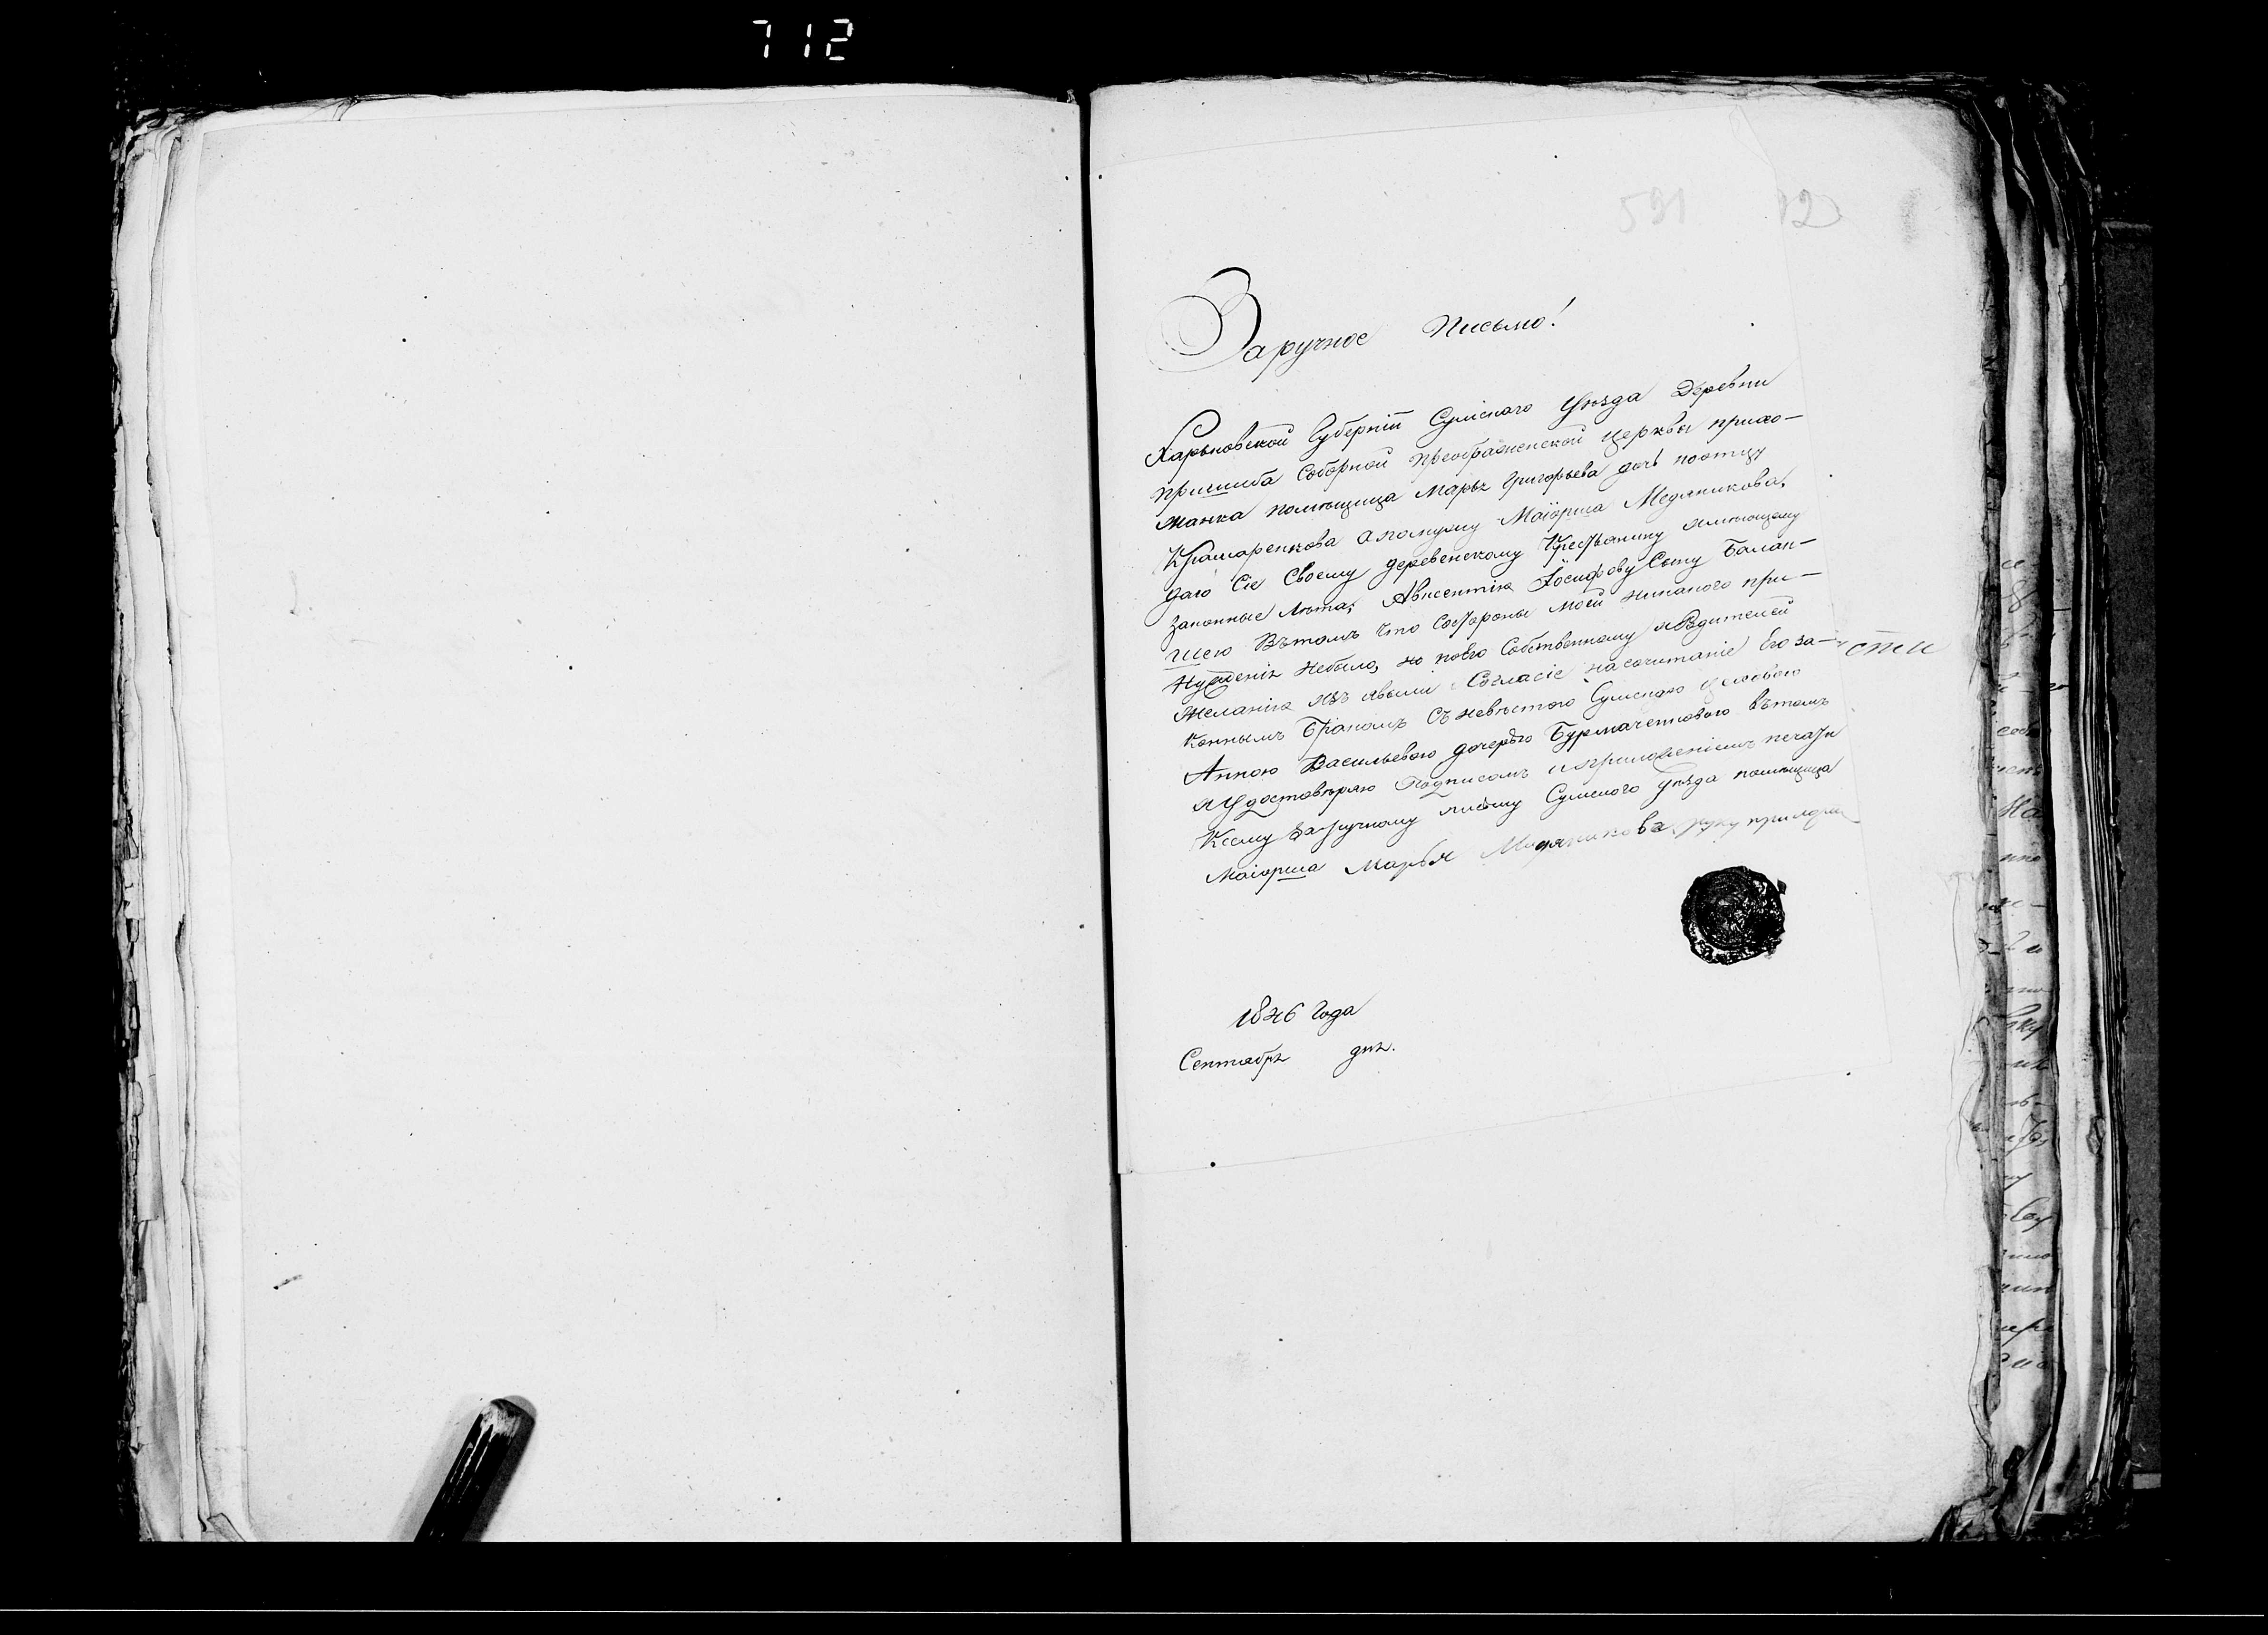 712
591 12
Заручное Письмо!
Харьковской Губерніи Сумскаго Уѣзда Деревни
пришиба Соборной преображенской церквы прихо-
жанка помѣщица Марья Григорьева дочь поотцу
Крамаренкова апомужу Маіорша Медяникова,
даю Сіе Своему деревенскому Крестьянину имѣющему
законные лѣта; Авксентію Іосифову Сыну Балан-
шею Вътомъ что Состороны моей никакого при-
нужденія небыло, но поего Собственному иРодителей
желанію изъ явыли Согласіе насочитаніе Его за-
коннымъ Бракомъ Съ невѣстою Сумскаго
Анною Васильевою дочерью Бурмаченковою вътомъ
иУдостовѣряю Подписомъ исприложеніемъ печати
Ксему Заручному письму Сумского уѣзда помѣщица
Маіорша Марья Медяникова руку приложи
сти
1846 Года
Сентября дня.